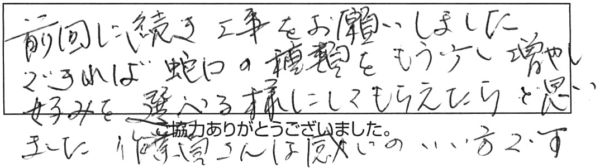 前回に続き工事をお願いしました
できれば蛇口の種類をもう少し増やし
好みを選べる様にしてもらえたらと思い
ご協力ありがとうございました。
ました 作業員さんは感じのいい方です